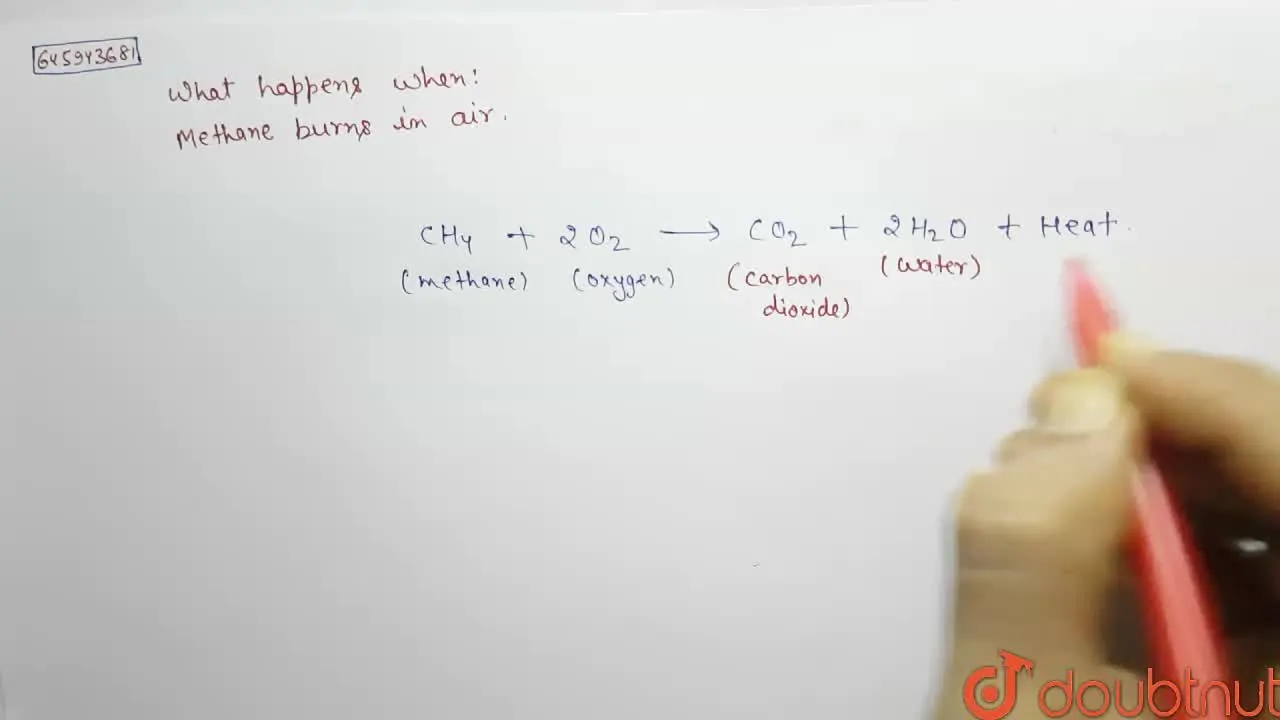 645943681
What happens when:
Methane burns in air.
CH4 + 2O2 → CO2 + 2H2O + Heat.
(methane) (oxygen) (carbon dioxide) (water)
doubtnut